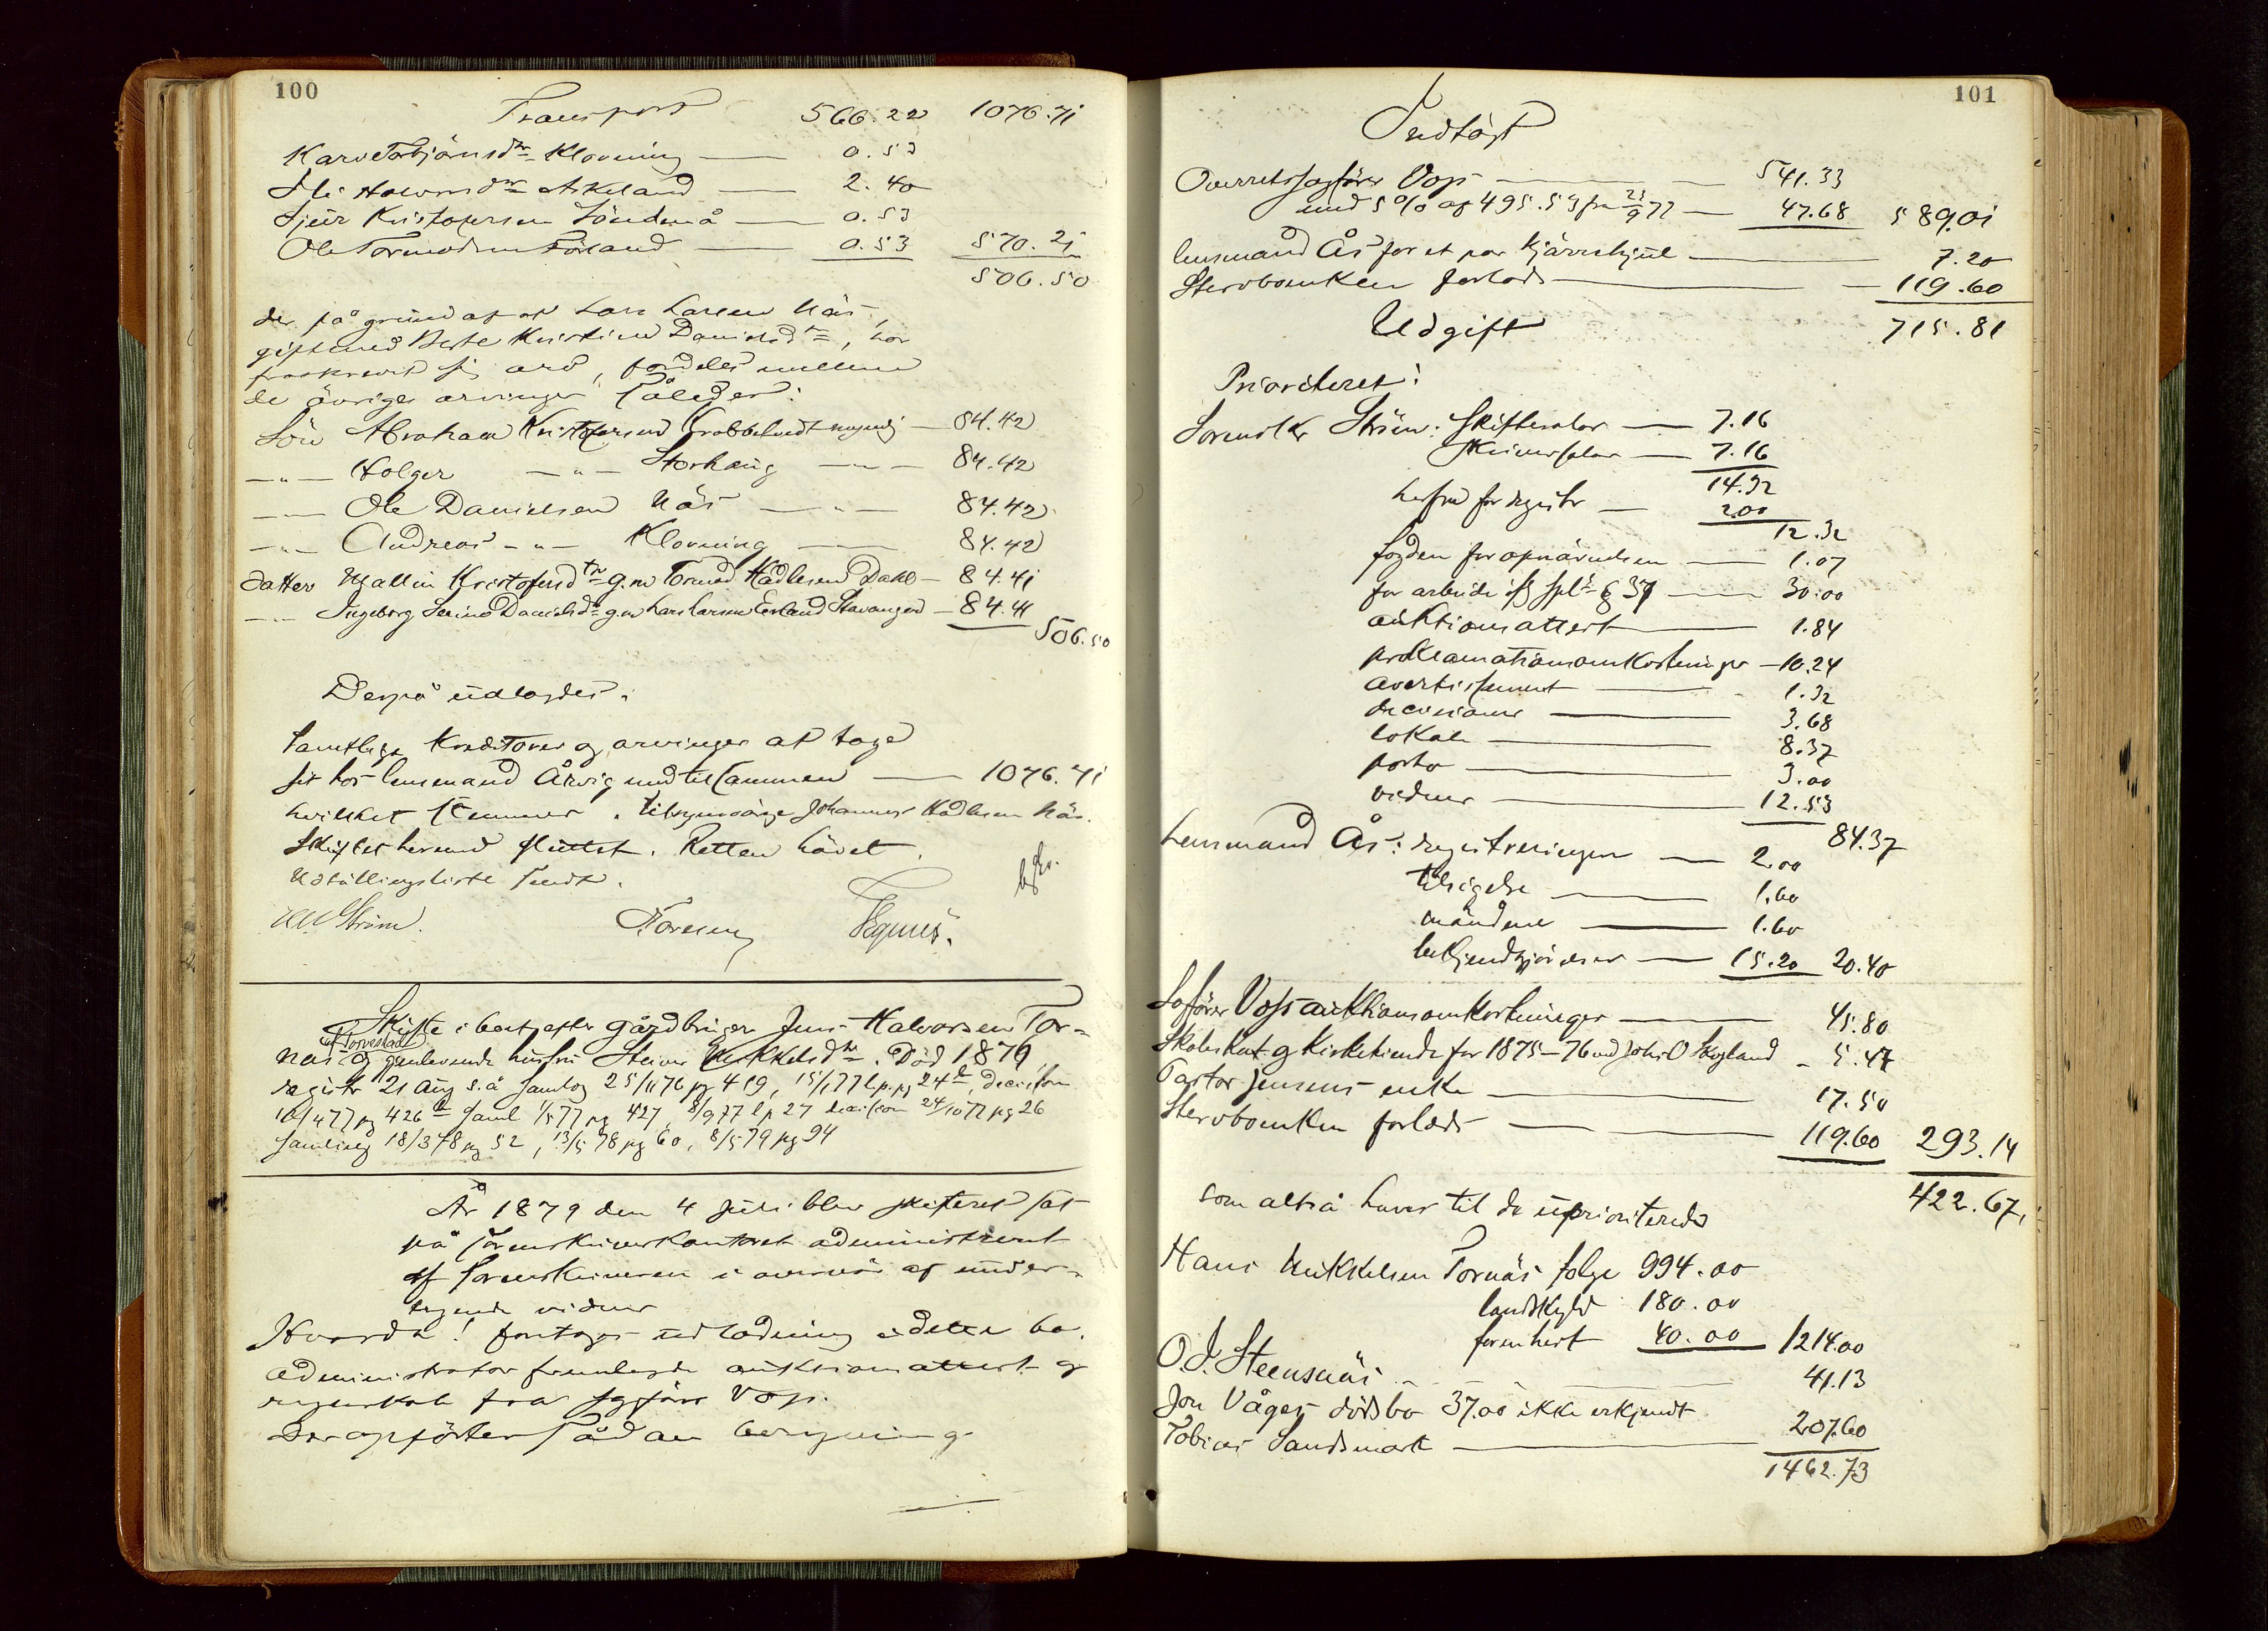 100
Transport 566.22 1076.71
Kari Torbjörnsdtr Klovning — 0.53
Eli Halvorsdtr Askeland — 2.40
Sjur Kristofersen Söndenå — 0.53
Ole Tormodsen Förland — 0.53 570.21
506.50
der på grund af at Lars Larsen Näs,
gift med Berte Kristine Danielsdtr, har
fraskrevet sig arv, fordeles mellem
de övrige arvinger således:
Sön Abraham Kristofersen Krabbetvedt myndig — 84.42
—"— Holger —"— Storhaug —"— 84.42
—"— Ole Danielsen Näs —"— 84.42
—"— Andreas —"— Klovning — 84.42
datter Mallin Kristofersdtr g.m Tormod Hadlesen Dahl — 84.41
—"— Ingeborg Serine Danielsdtr g.m Lars Larsen Erland Stavanger — 84.41
506.50
Derpå udlagdes:
samtlige kreditorer og arvinger at tage
sit hos lensmand Årvig med tilsammen — 1076.71
hvilket stemmer. tilsynsvärge Johannes Hadlesen Näs.
Skiftet hermed sluttet. Retten hävet.
Udstillingsliste sendt.
Ström.
Skifte i boet efter gårdbruger Jens Halvorsen Tor-
af Torvestad
näs og gjenlevende hustru Steiner Mikkelsdtr. Död 1876,
registr 21 Aug s.å samling 25/11 76 pg 419, 15/1 77 l.p. pg 24 decision
10/4 77 pg 426 saml 1/5 77 pg 427, 8/9 77 lp 27 decision 24/10 77 pg 26
samling 18/3 78 pg 52, 13/5 78 pg 60, 8/5 79 pg 94
År 1879 den 4 Juli blev skifteret sat
på sorenskriverkontoret administreret
af sorenskriveren i overvär af under-
tegnede vidner
Hvorda! foretoges udlodning i dette bo.
Administrator fremlagde auktionsattest og
regnskab fra sagförer Voss.
Der opförtes sådan beregning
101
Indtägt
Overretssagförer Voss — 541.33
med 5% af 495.59 fra 23/9 77 — 47.68 589.01
lensmand Ås for et par kjärrehjul — 7.20
Stervboenken forlods — 119.60
Udgift 715.81
Prioriteret:
Sorenskr Ström: skiftesalar — 7.16
skriversalar — 7.16
14.32
herfra for registr — 2.00
12.32
fogden for opnävnelsen — 1.07
for arbeide ifg spl § 37 — 30.00
auktionsattest — 1.84
proklamationsomkostninger — 10.24
avertissement — 1.32
decisioner — 3.68
lokale — 8.37
porto — 3.00
vidner — 12.53
84.37
Lensmand Ås: registreringen — 2.00
tilsigelse — 1.60
mändene — 1.60
bekjendtgjörelser — 15.20 20.40
Saförer Voss auktionsomkostninger — 45.80
Skoleskat og kirketiende for 1875–76 ved Johs O Skogland — 5.47
Pastor Jensens enke — 17.50
Stervboenken forlods — 119.60 293.14
som altså haves til de uprioriterede 422.67,
Hans Mikkelsen Tornäs folge 994.00
landskyld 180.00
40.00 1214.00
O. J. Steensnäs — 41.13
Jon Våges dödsbo 37.00 ikke erkjendt
Tobias Sandsmark — 207.60
1462.73